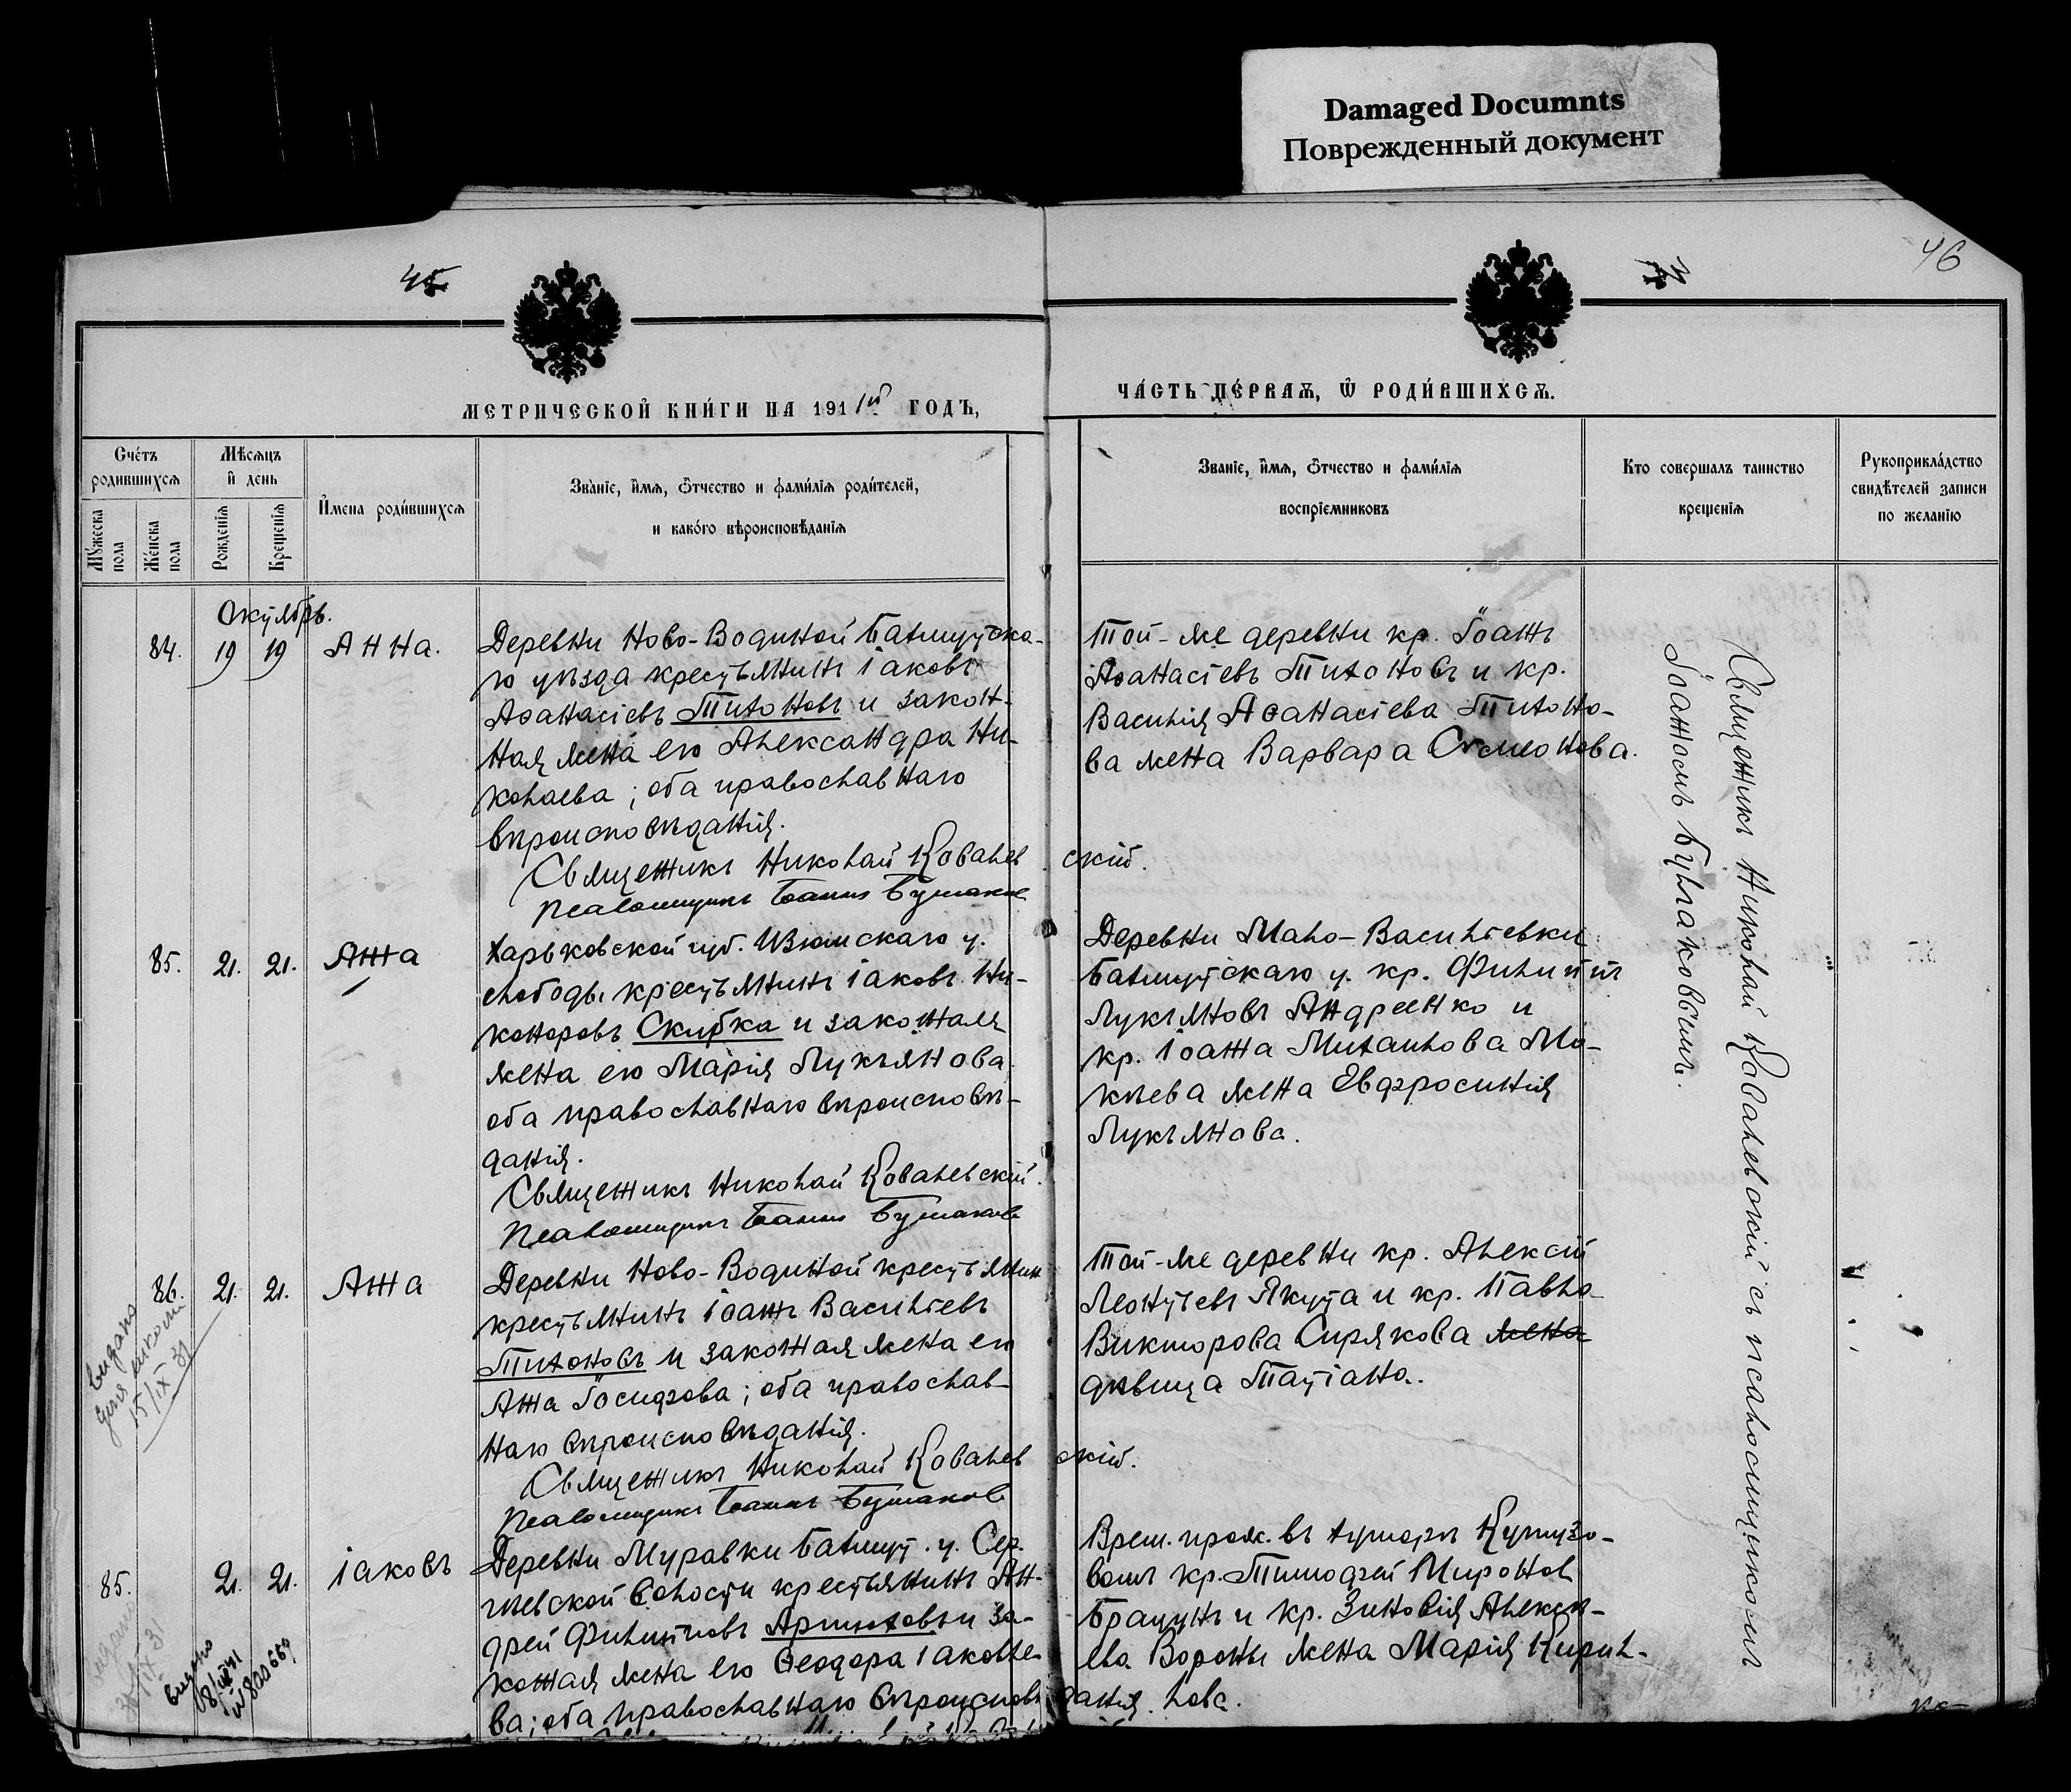 Damaged Documnts
Поврежденный документ
46
МЕТРИЧЕСКОЙ КНИ́ГИ НА 1911й ГОДЪ,
ЧА́СТЬ ПЕ́РВАѦ, Ѿ РОДИ́ВШИХСѦ.
Счéтъ родившихсѧ
Мꙋ́жеска пола
Жéнска пола
Мѣ́сѧцъ и̂ день
Рожденїѧ
Крещенїѧ
И̂мена роди́вшихсѧ
Зва́нїе, и̂мѧ, ѿчество и фами́лїѧ роди́телей,
и како́го вѣроисповѣ́данїѧ
Званїе, и̂мѧ, ѿчество и фами́лїѧ
воспрїемниковъ
Кто совершалъ таинство
крещенїѧ
Рукоприкла́дство
свидѣ́телей записи
по желанїю
Октябрь.
84. 19 19 Анна.
Деревни Ново-Водяной Бахмутска-
го уѣзда крестьянинъ Іаковъ
Аѳанасіевъ Тихоновъ и закон-
ная жена его Александра Ни-
колаева; оба православнаго
вѣроисповѣданія.
Священникъ Николай Ковалевскій.
Псаломщикъ Іоаннъ Булаковъ
Той-же деревни кр. Іоаннъ
Аѳанасіевъ Тихоновъ и кр.
Василія Аѳанасіева Тихоно-
ва жена Варвара Симеонова.
85. 21. 21. Анна
Харьковской губ. Изюмскаго у.
слободы крестьянинъ Іаковъ Ни-
каноровъ Скибка и законная
жена его Марія Лукьянова
оба православнаго вѣроисповѣ-
данія.
Священникъ Николай Ковалевскій.
Псаломщикъ Іоаннъ Булаковъ
Деревни Мало-Васильевки
Бахмутскаго у. кр. Филиппъ
Лукьяновъ Андреенко и
кр. Іоанна Михаилова Мо-
кѣева жена Евфросинія
Лукьянова.
86. 21. 21. Анна
Деревни Ново-Водяной крестьянин
крестьянинъ Іоаннъ Васильевъ
Тихоновъ и законная жена его
Анна Іосифова; оба православ-
наго вѣроисповѣданія.
Священникъ Николай Ковалевскій.
Псаломщикъ Іоаннъ Булаковъ
Той-же деревни кр. Алексій
Леонтьевъ Якута и кр. Павла
Викторова Сирякова жена
дѣвица Татіана.
видано
15/IX 31
85. 21. 21. Іаковъ
Деревни Муравки Бахмут. у. Сер-
гіевской волости крестьянинъ Ан-
дрей Филипповъ Архиповъ и за-
конная жена его Ѳеодора Іаковле-
ва; оба православнаго вѣроисповѣданія.
Врем. прож. въ хуторѣ Кутузо-
вомъ кр. Тимофей Мироновъ
Братунъ и кр. Зиновія Алексѣ-
ева Вороны жена Марія Кирил-
лова.
видано
Священникъ Николай Ковалевскій съ псаломщикомъ
Іоанномъ Булаковымъ.